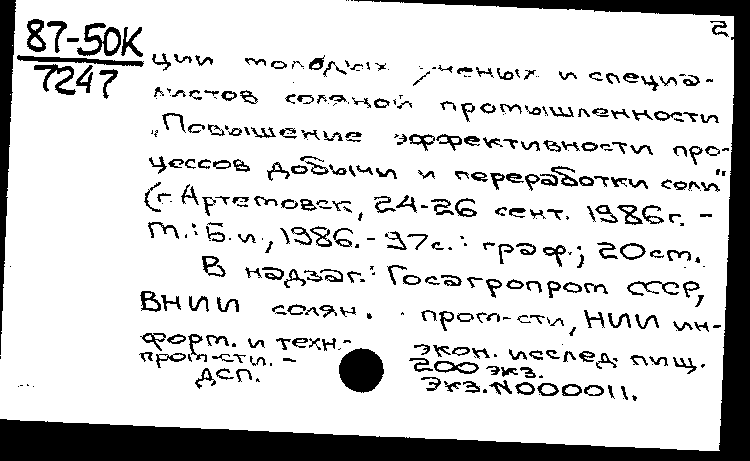 2.
87-50К
7247
ции молодых ученых и специа-
листов соляной промышленности
„Повышение эффективности про-
цессов добычи и переработки соли"
(г. Артемовск, 24-26 сент. 1986г. -
М.: Б.и., 1986. - 97с.: граф.; 20см.
В надзаг.: Госагропром СССР,
ВНИИ солян. пром-сти, НИИ ин-
форм. и техн.- экон. исслед. пищ.
пром-сти. - 200 экз.
ДСП. Экз.N000011.